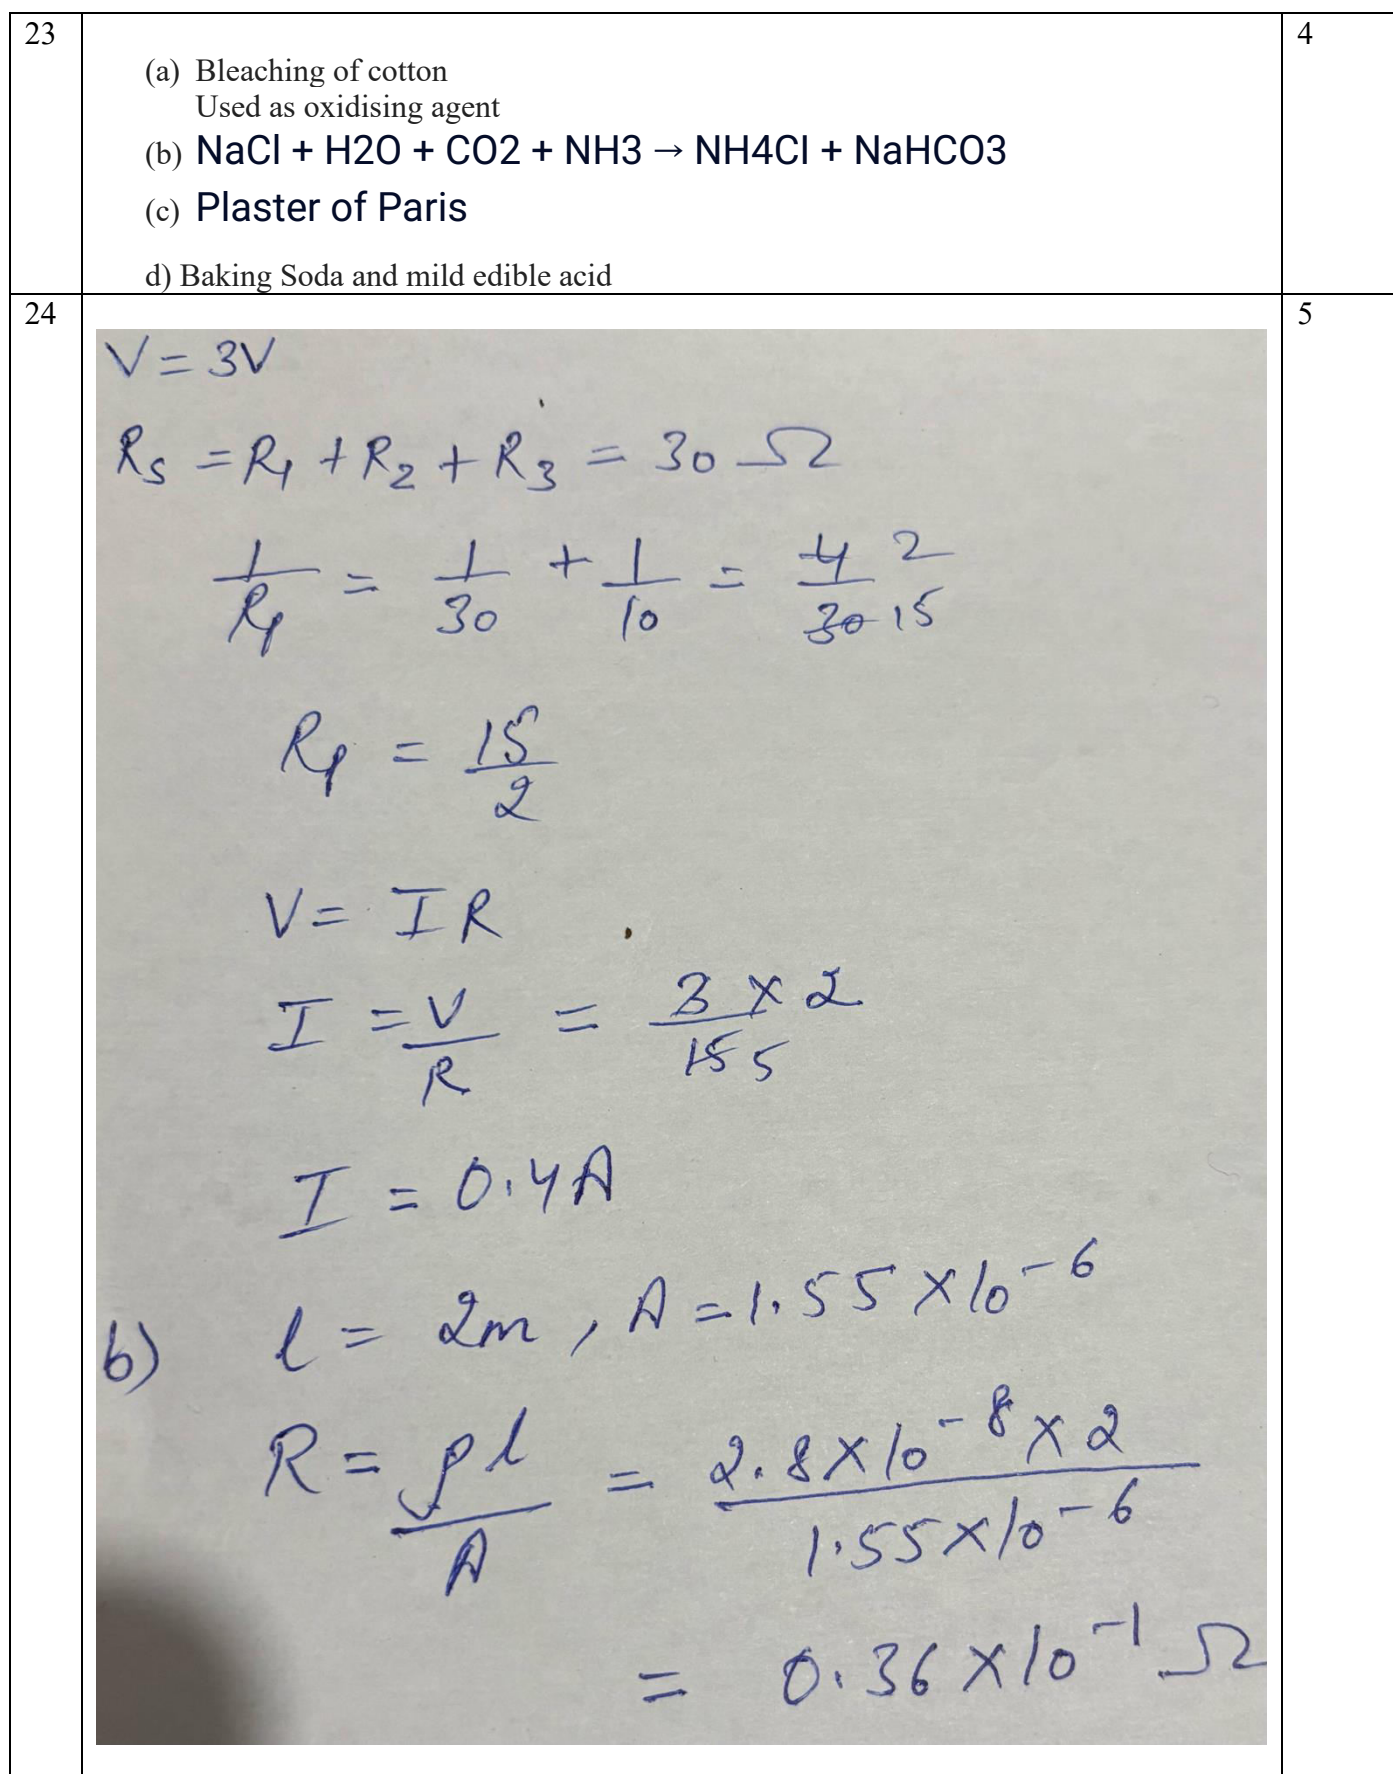 23
4
(a) Bleaching of cotton
Used as oxidising agent
(b) NaCl + H2O + CO2 + NH3 → NH4Cl + NaHCO3
(c) Plaster of Paris
d) Baking Soda and mild edible acid
24
5
V = 3V
Rs = R1 + R2 + R3 = 30 Ω
1/Rp = 1/30 + 1/10 = 4/30 2/15
Rp = 15/2
V = IR
I = V/R = 3 × 2/15 5
I = 0.4A
b) l = 2m, A = 1.55 × 10⁻⁶
R = ρl/A = 2.8 × 10⁻⁸ × 2/1.55 × 10⁻⁶
= 0.36 × 10⁻¹ Ω